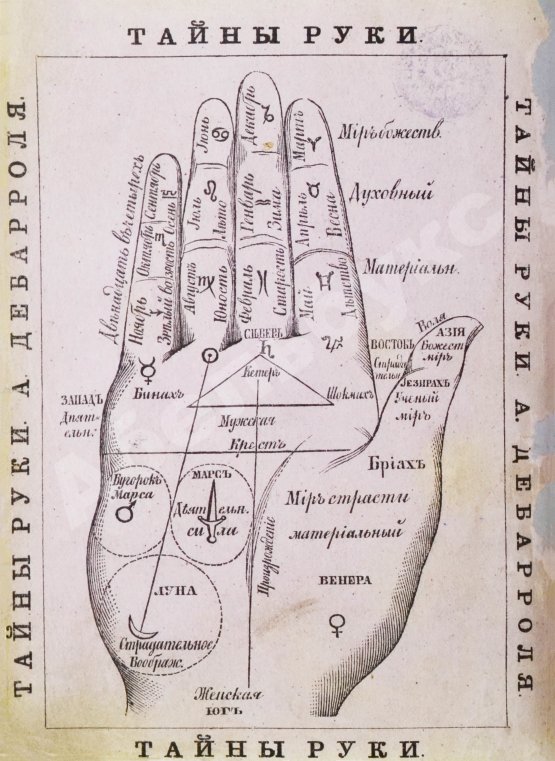 ТАЙНЫ РУКИ
ТАЙНЫ РУКИ. А. ДЕБАРРОЛЯ.
ТАЙНЫ РУКИ. А. ДЕБАРРОЛЯ.
Декабрь
Іюнь
Мартъ
Міръ божеств.
Двѣнадцать въ четырехъ
Сентябрь
Осень
Іюль
Лѣто
Генварь
Зима
Апрѣль
Весна
Духовный
Октябрь
Зрѣлый возрастъ
Ноябрь
Августъ
Юность
Февраль
Старость
Май
Дѣтство
Матеріальн.
СѢВЕРЪ
Воля
АЗІЯ
Божест
міръ
ВОСТОКЪ
Страдательн.
Кетеръ
ІЕЗИРАХЪ
Ученый
міръ
ЗАПАДЪ
Дѣятельн.
Бинахъ
Шокмахъ
Мужская
Крестъ
Бріахъ
Бугорокъ
Марса
МАРСЪ
Дѣятельн.
сила
Міръ страсти
матеріальный
ЛУНА
ВЕНЕРА
Страдательное
Воображ.
Женская
ЮГЪ
ТАЙНЫ РУКИ.